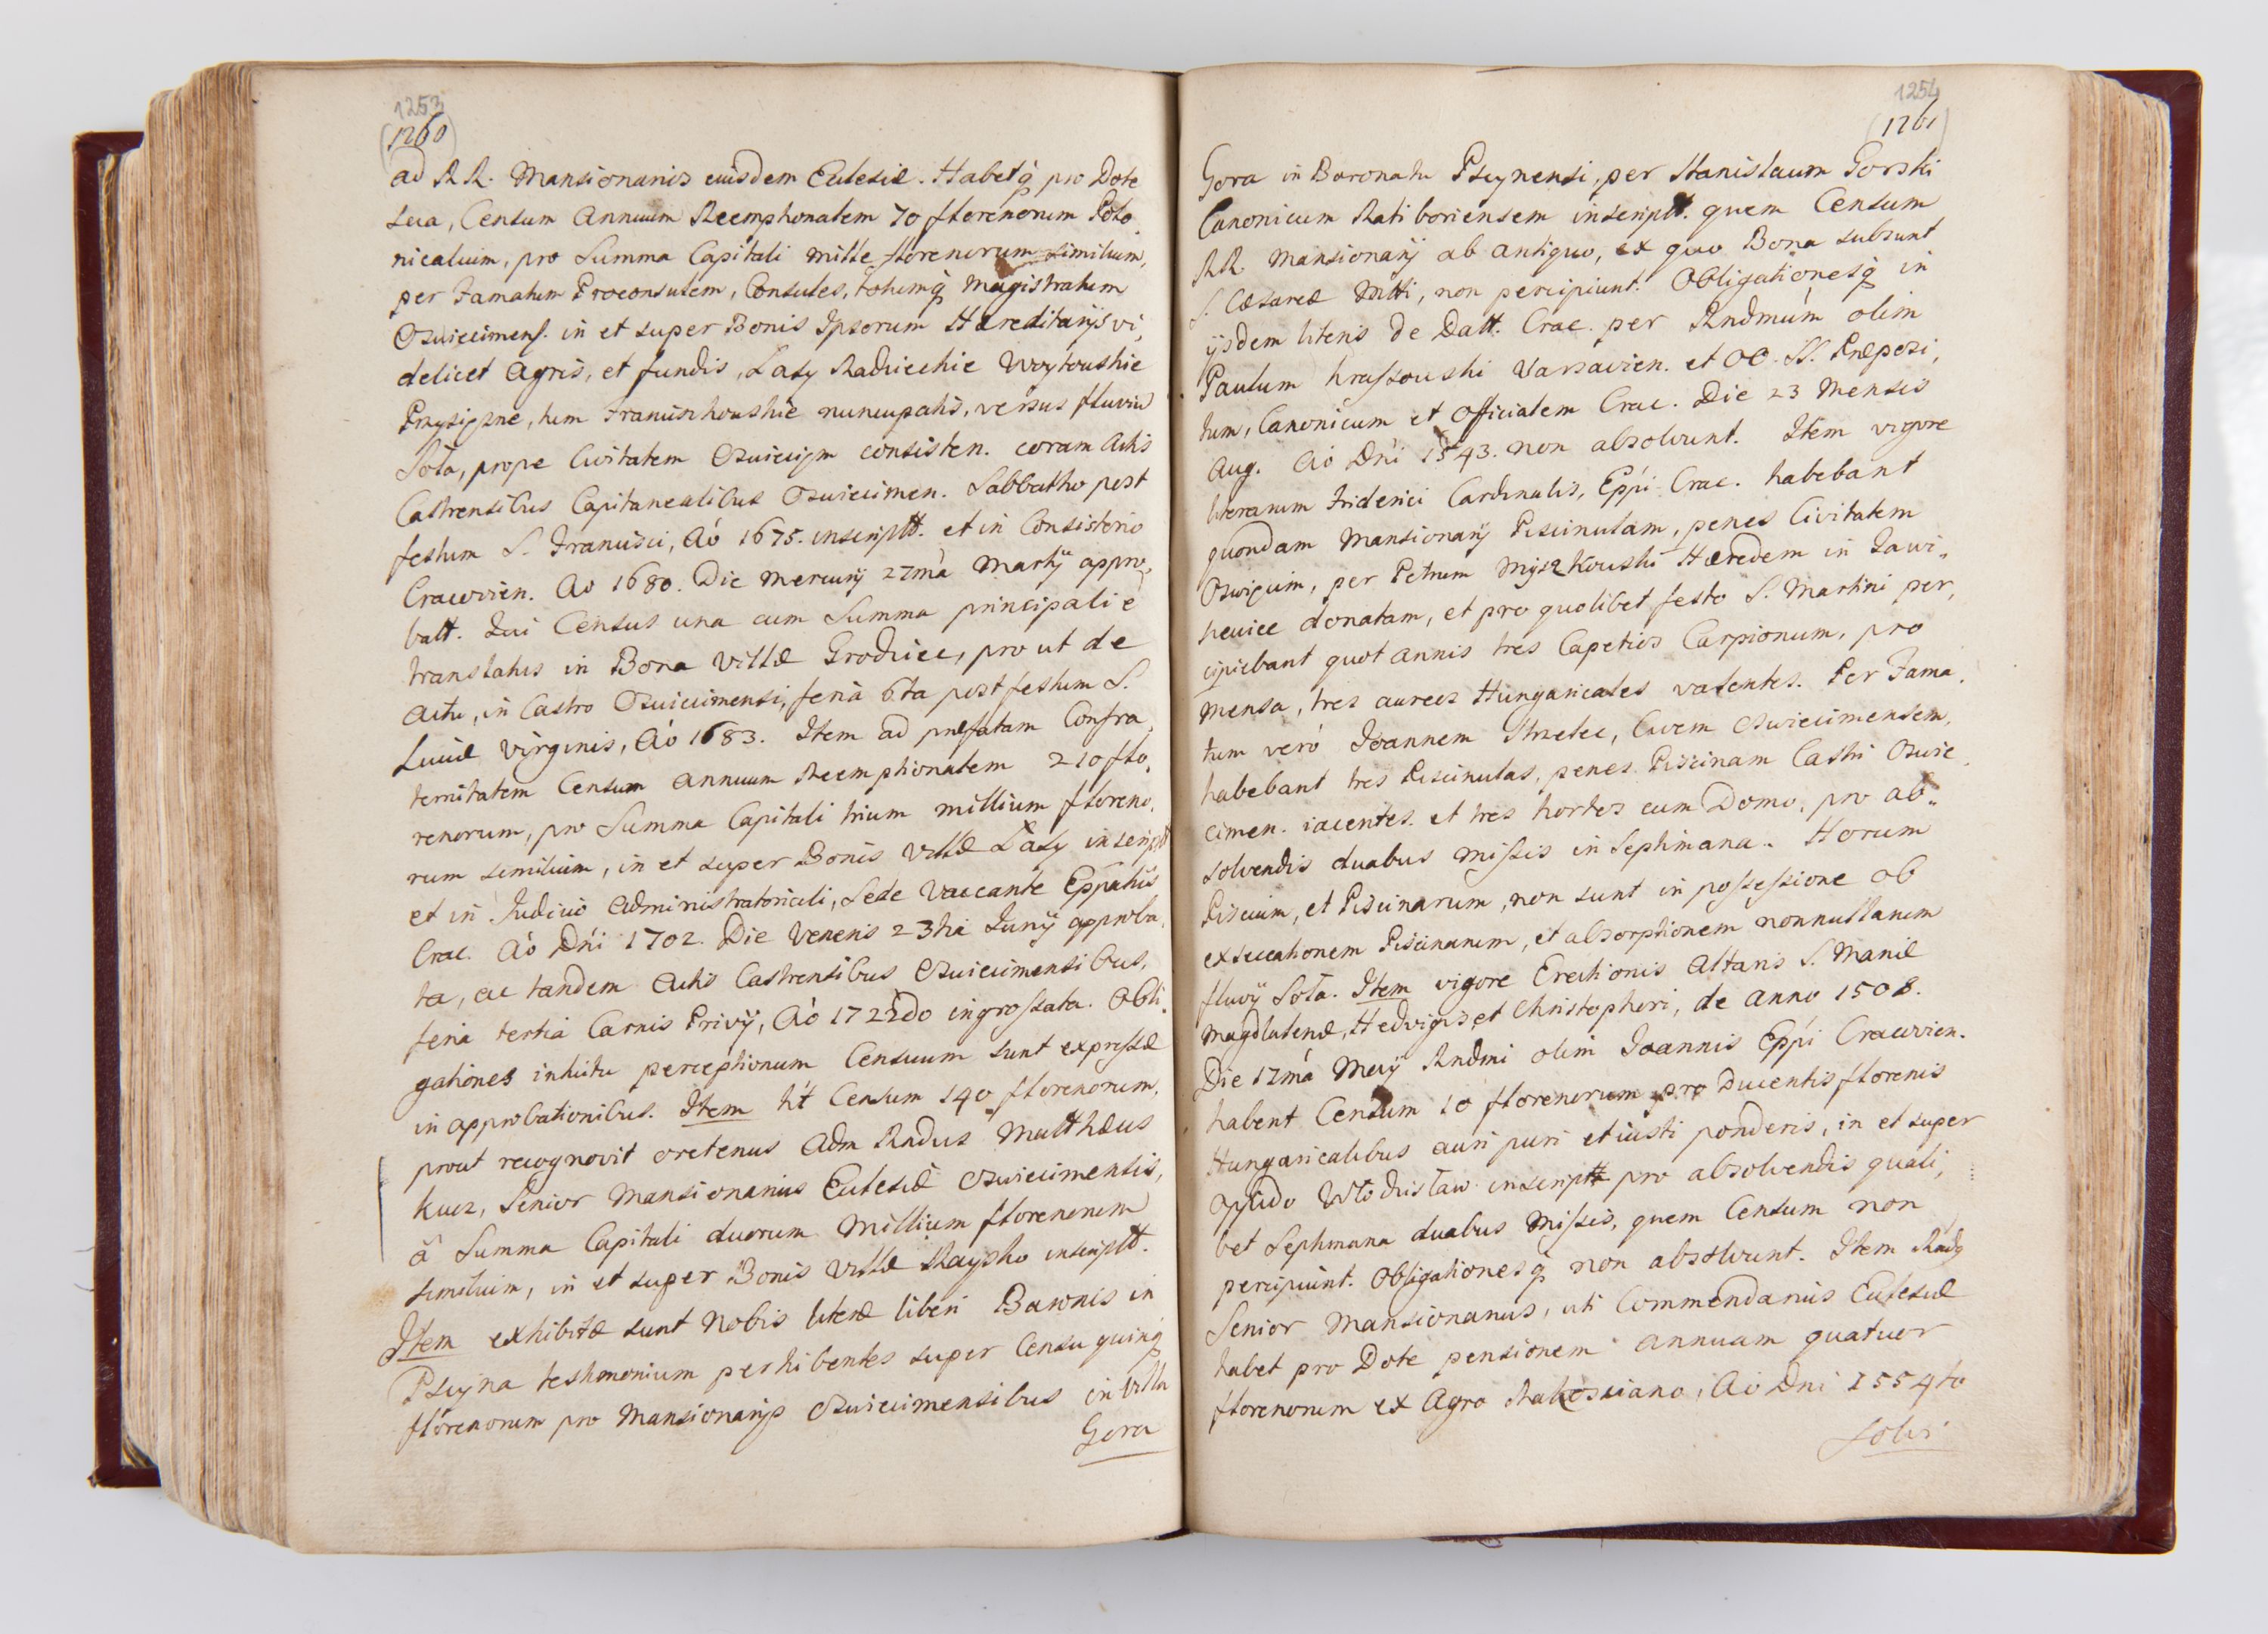 1253
(1260)
ad RR. Mansionarios eiusdem Ecclesiæ. Habetq̃ pro Dote
sua, Censum Annuum Reemptionalem 70 florenorum Polo,
nicalium, pro Summa Capitali mille florenorum similium,
per Famatum Proconsulem, Consules, totumq̃ Magistratum
Oswiecimens. in et super Bonis Ipsorum Hæreditarijs vi,
delicet Agris, et fundis, Lazy Radwieckie Woytowskie
Przysięzne, tum Franciszkowskie nuncupatis, versus fluviũ
Soła, prope Civitatem Oswiecijm consisten. coram Actis
Castrensibus Capitanealibus Oswiecimen. Sabbatho post
festum S. Francisci, Aó 1675. inscriptt. et in Consistorio
Cracovien. Ao 1680. Die Mercurij 27má Martij appro,
batt. Qui Census una cum Summa principali è
translatus in Bona Villæ Grodziec, pro ut de
Actu, in Castro Oswiecimensi, feria 6ta post festum S.
Luciæ Virginis, Aó 1683. Item ad præfatam Confra,
ternitatem Censum annuum Reemptionalem 210 flo,
renorum, pro Summa Capitali trium millium floreno,
rum similium, in et super Bonis Villæ Lazy inscriptt
et in Judicio Administratoriali, Sede Vaccante Eppatûs
Crac. Aó Dńi 1702. Die Veneris 23tia Junij approba,
ta, ac tandem Actis Castrensibus Oswiecimensibus,
feria tertia Carnis Privij, Aó 1722do ingrossata. Obli,
gationes intuitu perceptionum Censuum sunt expressæ
in approbationibus. Item ht Censum 140 florenorum,
prout recognovit oretenus Adm Rndus Matthæus
Kucz, Senior Mansionarius Ecclesiæ Oswiecimensis,
à Summa Capitali duorum Millium florenorum
similium, in et super Bonis Villæ Raysko inscriptt.
Item exhibitæ sunt Nobis literæ liberi Baronis in
Pscyna testimonium perhibentes super Censu quinq̃
florenorum pro Mansionarijs Oswiecimensibus in Villa
Gora
1254
(1261)
Gora in Baronatu Pscynensi, per Stanislaum Gorski
Canonicum Ratiboriensem inscriptt. quem Censum
RR. Mansionarij ab antiquo, ex quo Bona subsunt
S. Cæsareæ Mtti, non percipiunt. Obligationesq̃ in
ijsdem literis de Datt. Crac. per Rndmúm olim
Paulum Krassowski Varsavien. et OO. SS. Præposi,
tum, Canonicum et Officialem Crac. Die 23 Mensis
Aug. Aó Dńi 1543. non absolvunt. Item vigore
literarum Friderici Cardinalis, Eppi Crac. habebant
quondam Mansionarij Piscinulam, penes Civitatem
Oswięcim, per Petrum Myszkowski Hæredem in Zawi,,
peuice donatam, et pro quolibet festo S. Martini per,
cipiebant quot annis tres Capetios Carpionum, pro
mensa, tres aureos Hungaricales valentes. Per Fama,
tum veró Ioannem Strzelec, Civem Oswiecimensem,
habebant tres Piscinulas, penes Piscinam Castri Oswie,
cimen. iacentes. et tres hortos cum Domo, pro ab,,
solvendis duabus Missis in Septimana. Horum
Piscium, et Piscinarum, non sunt in possessione ob
exsiccationem Piscinarum, et absorptionem nonnullarum
fluvij Soła. Item vigore Erectionis Altaris S. Mariæ
Magdalenæ, Hedvigis, et Christophori, de Anno 1508.
Die 17má Maij Rndmi olim Ioannis Eppi Cracovien.
habent Censum 10 florenorum pro Ducentis florenis
Hungaricalibus auri puri et iusti ponderis, in et super
oppido Włodzisław inscriptt pro absolvendis quali,
bet Septimana duabus Missis, quem Censum non
percipiunt. Obligationesq̃ non absolvunt. Item Rndg
Senior Mansionarius, uti Commendarius Ecclesiæ
habet pro Dote pensionem annuam quatuor
florenorum ex Agro Rakosciano, Aó Dni 1554to
Solvi